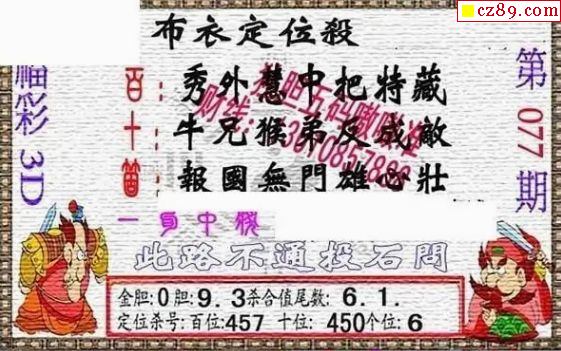 cz89.com
布衣定位殺
福彩3D
第077期
百:秀外慧中把特藏
十:牛兄猴弟反成敵
個:報國無門雄心壯
一
中
此路不通投石問
金胆:0胆:9.3杀合值尾数:6.1.
定位杀号:百位:457 十位:450个位:6